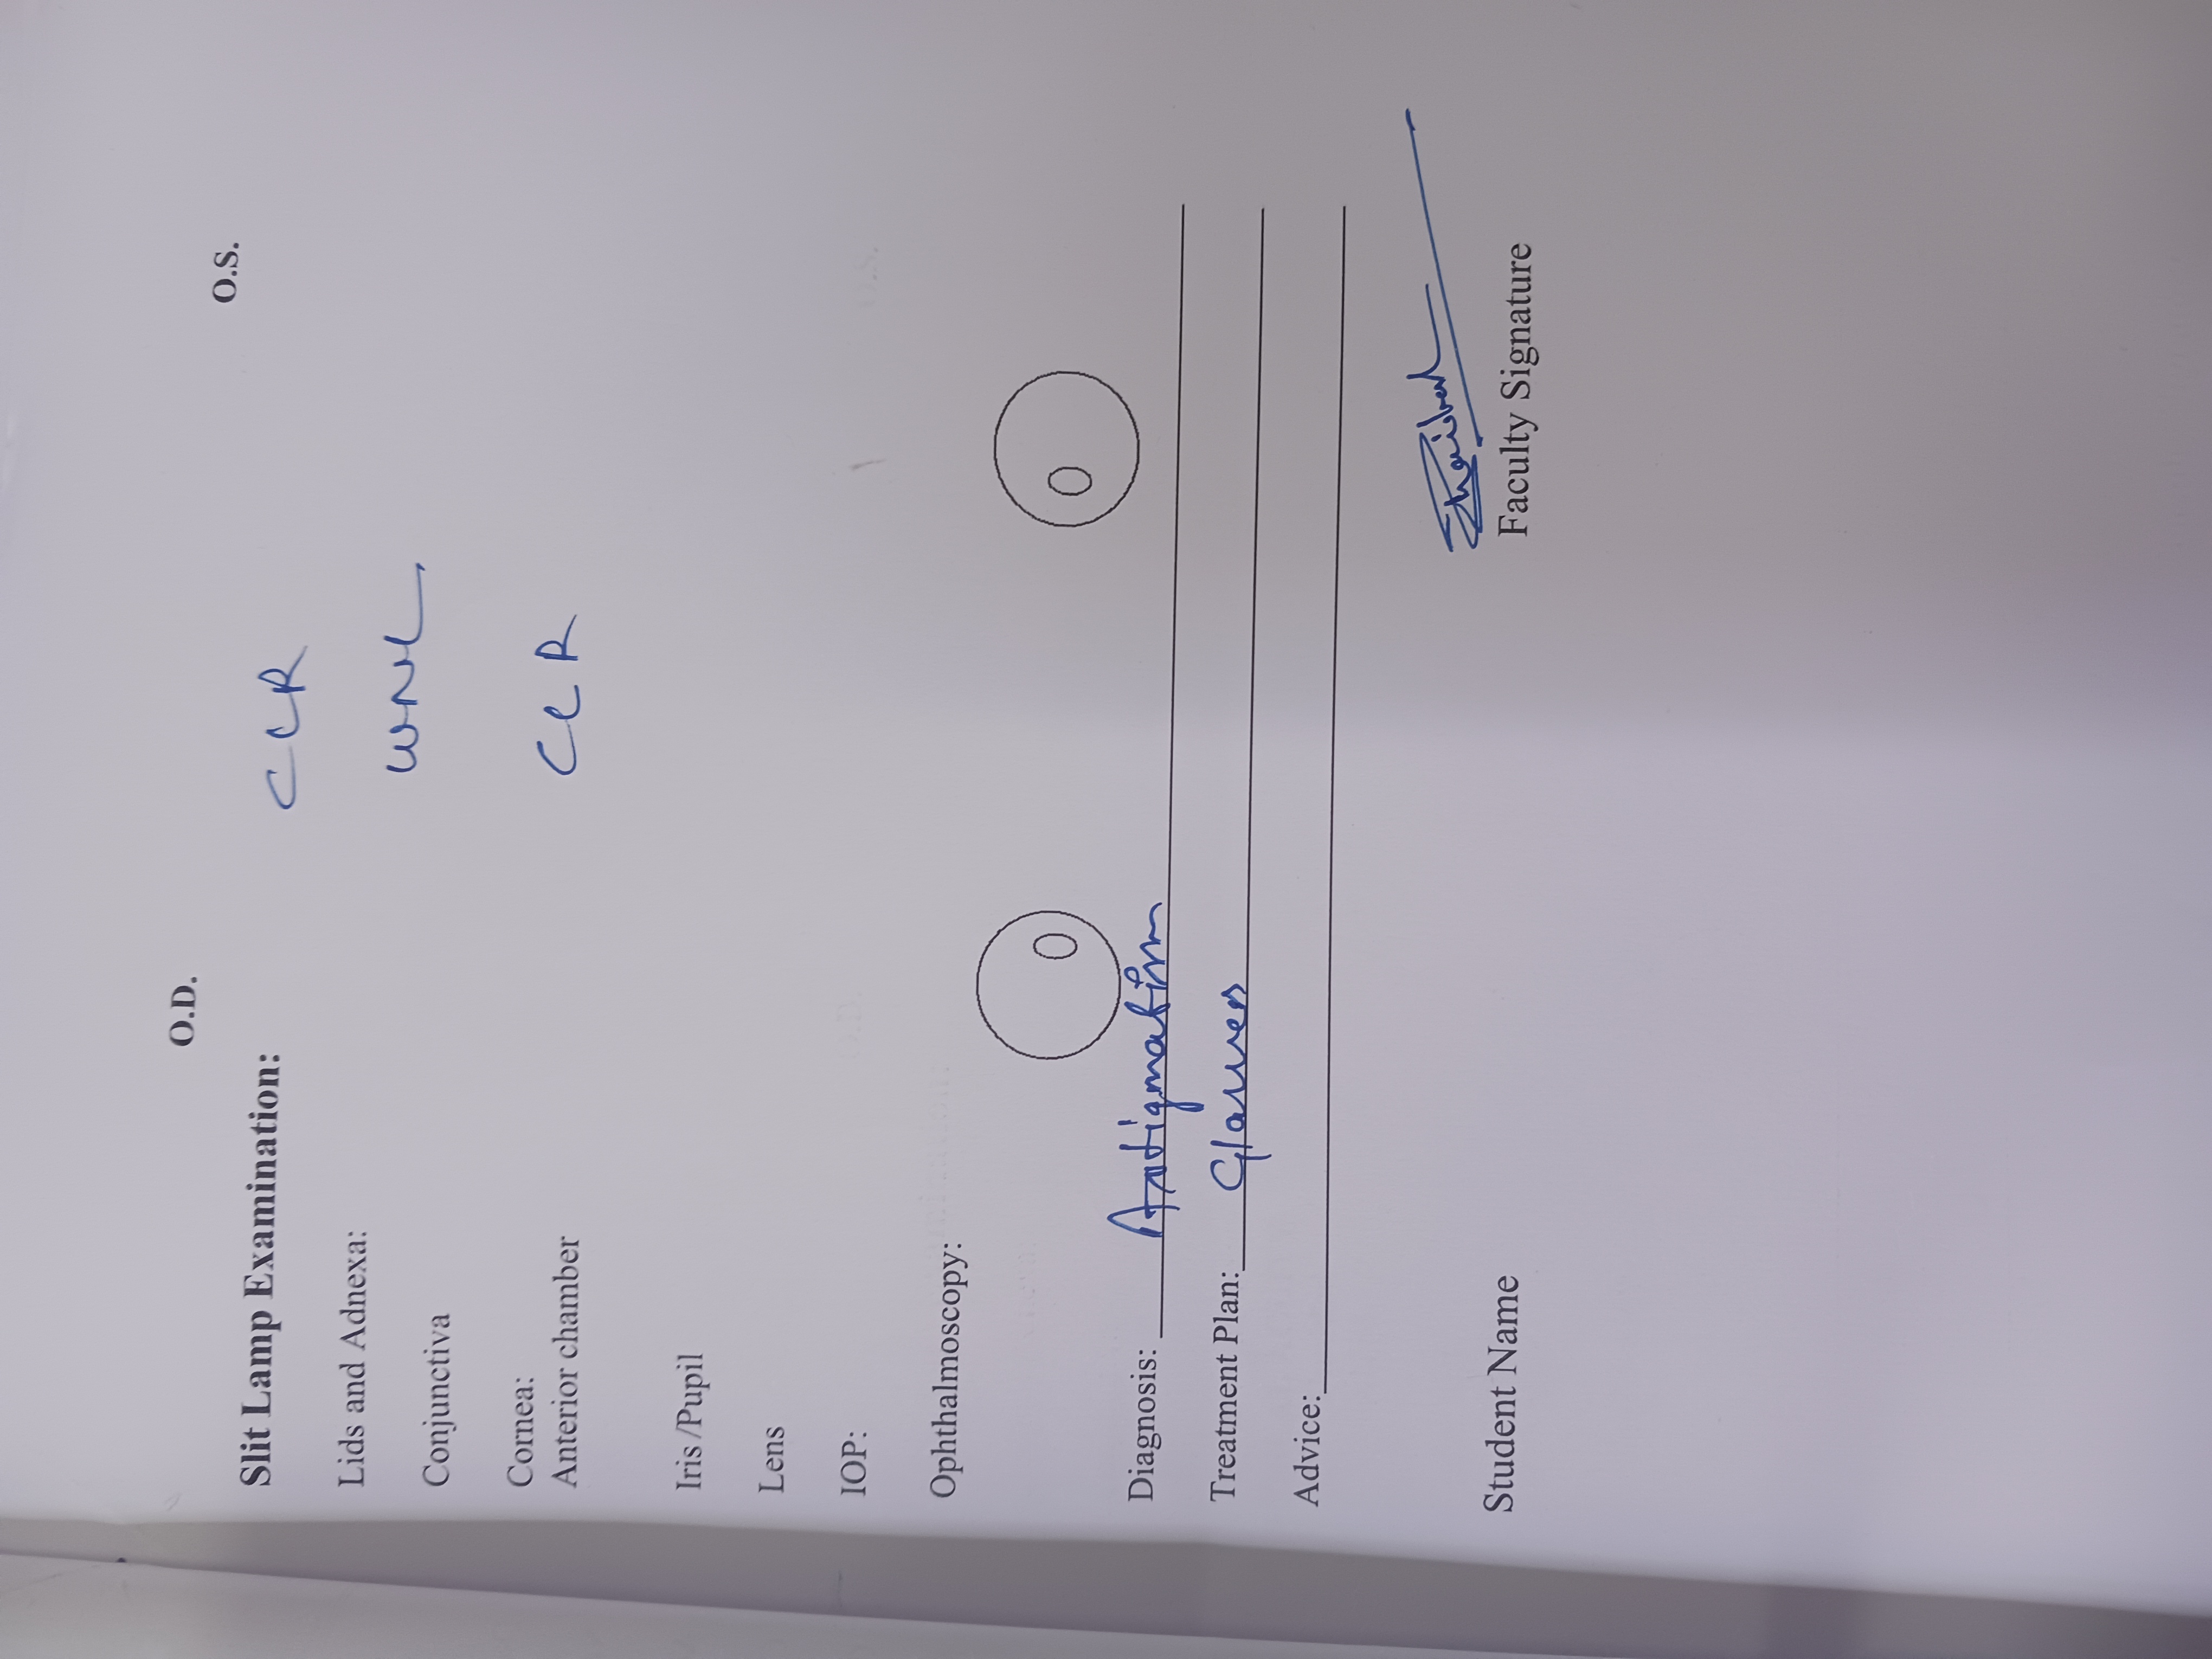 O.D. O.S.
Slit Lamp Examination: CLR
Lids and Adnexa:
WNL
Conjunctiva
Cornea:
Anterior chamber CLR
Iris /Pupil
Lens
IOP:
Ophthalmoscopy:
Diagnosis: Astigmatism
Treatment Plan: Glasses
Advice:
Student Name Faculty Signature